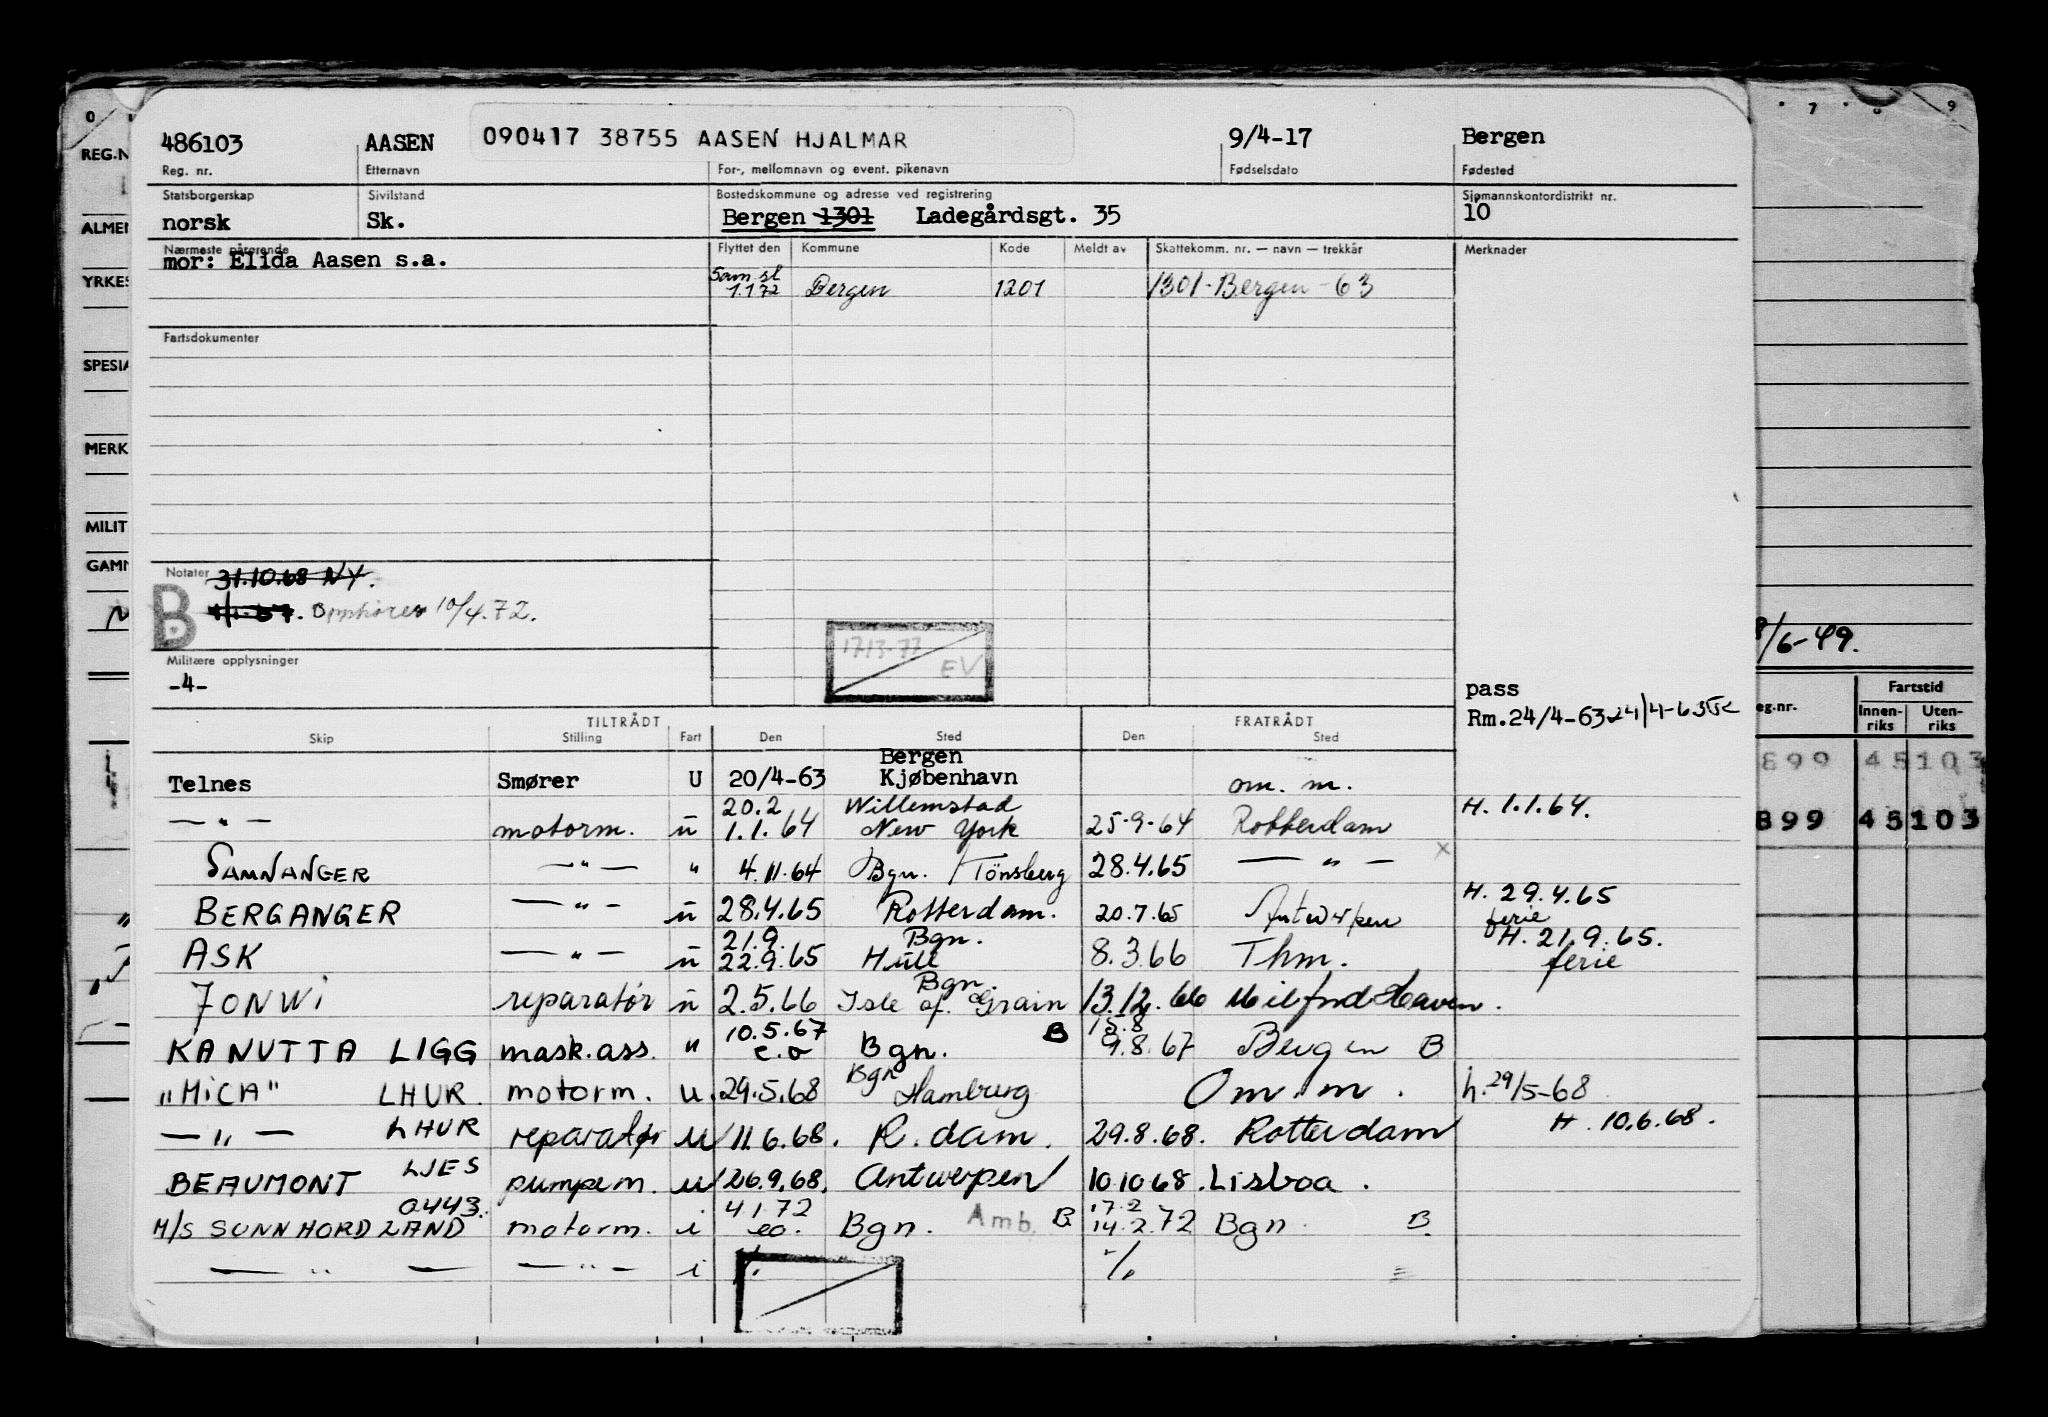 486103 AASEN 090417 38755 AASEN HJALMAR 9/4-17 Bergen
Reg. nr. Etternavn For-, mellomnavn og event. pikenavn Fødselsdato Fødested
Statsborgerskap Sivilstand Bostedskommune og adresse ved registrering Sjømannskontordistrikt nr.
norsk Sk. Bergen 1301 Ladegårdsgt. 35 10
Nærmeste pårørende Flyttet den Kommune Kode Meldt av Skattekomm. nr. — navn — trekkår Merknader
mor: Elida Aasen s.a.
Sam.sl
1.1 72 Bergen 1201 1301-Bergen-63
Fartsdokumenter
Notater 31.10.68 NY.
B Opphører 10/4.72.
1713-77
EV
Militære opplysninger
-4-
pass
Rm.24/4-63 24/4-63
TILTRÅDT FRATRÅDT
Skip Stilling Fart Den Sted Den Sted
Bergen
Telnes Smører U 20/4-63 Kjøbenhavn om. m.
20.2 Willemstad H. 1.1.64.
— " — motorm. u 1.1.64 New York 25-9-64 Rotterdam
SAMNANGER — " — " 4.11.64 Bgn. / Tönsberg 28.4.65 — " — x
BERGANGER — " — u 28.4.65 Rotterdam. 20.7.65 Antwerpen H. 29.4.65
ferie
21.9. Bgn. H. 21.9.65.
ASK — " — u 22.9.65 Hull 8.3.66 Thm. ferie
Bgn.
JONWI reparatør u 2.5.66 Isle of Grain 13.12.66 Milford Haven.
10.5.67 B 15.8
KANUTTA LIGG mask.ass. " e.o Bgn. 9.8.67 Bergen B
Bgn
"MICA" LHUR. motorm. u. 29.5.68 Hamburg Om. m. h. 29/5-68
— " — LHUR reparatør u 11.6.68. R.dam. 29.8.68. Rotterdam H. 10.6.68.
BEAUMONT LJES pumpem. u 26.9.68. Antwerpen 10.10.68. Lisboa.
0443. 4.1.72 17.2
M/S SUNNHORDLAND motorm. i eo. Bgn. Amb. B. 14.2.72 Bgn. B.
— " — — " — i -/.
O
REG.N
ALMEN
YRKES
SPESIA
MERK
MILIT
GAMM
7 8 9
/6-49.
eg.nr. Fartstid
Innen-riks Uten-riks
899 45103
899 45103